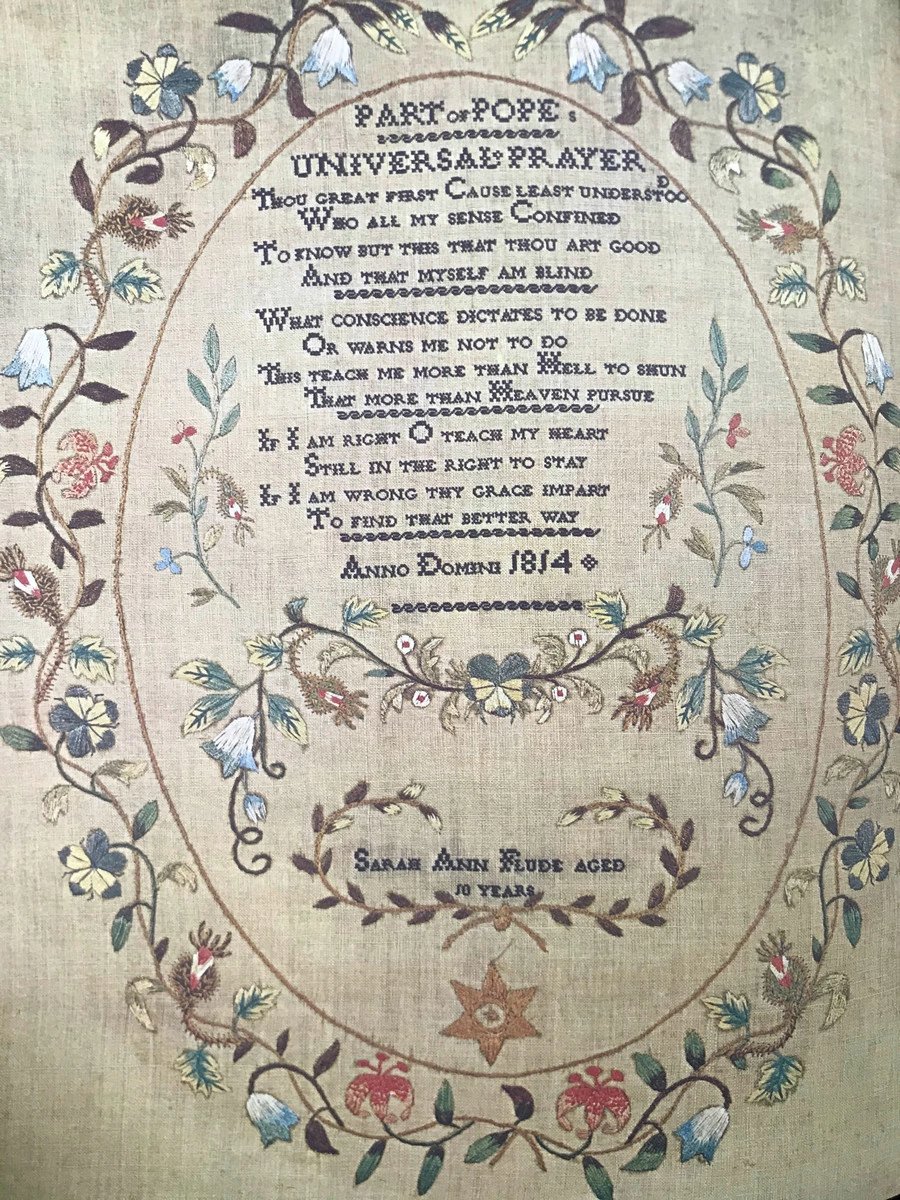 PART OF POPE S
UNIVERSAL PRAYER
THOU GREAT FIRST CAUSE LEAST UNDERSTOOD
WHO ALL MY SENSE CONFINED
TO KNOW BUT THIS THAT THOU ART GOOD
AND THAT MYSELF AM BLIND
WHAT CONSCIENCE DICTATES TO BE DONE
OR WARNS ME NOT TO DO
THIS TEACH ME MORE THAN HELL TO SHUN
THAT MORE THAN HEAVEN PURSUE
IF I AM RIGHT O TEACH MY HEART
STILL IN THE RIGHT TO STAY
IF I AM WRONG THY GRACE IMPART
TO FIND THAT BETTER WAY
ANNO DOMINI 1814
SARAH ANN FLUDE AGED
10 YEARS